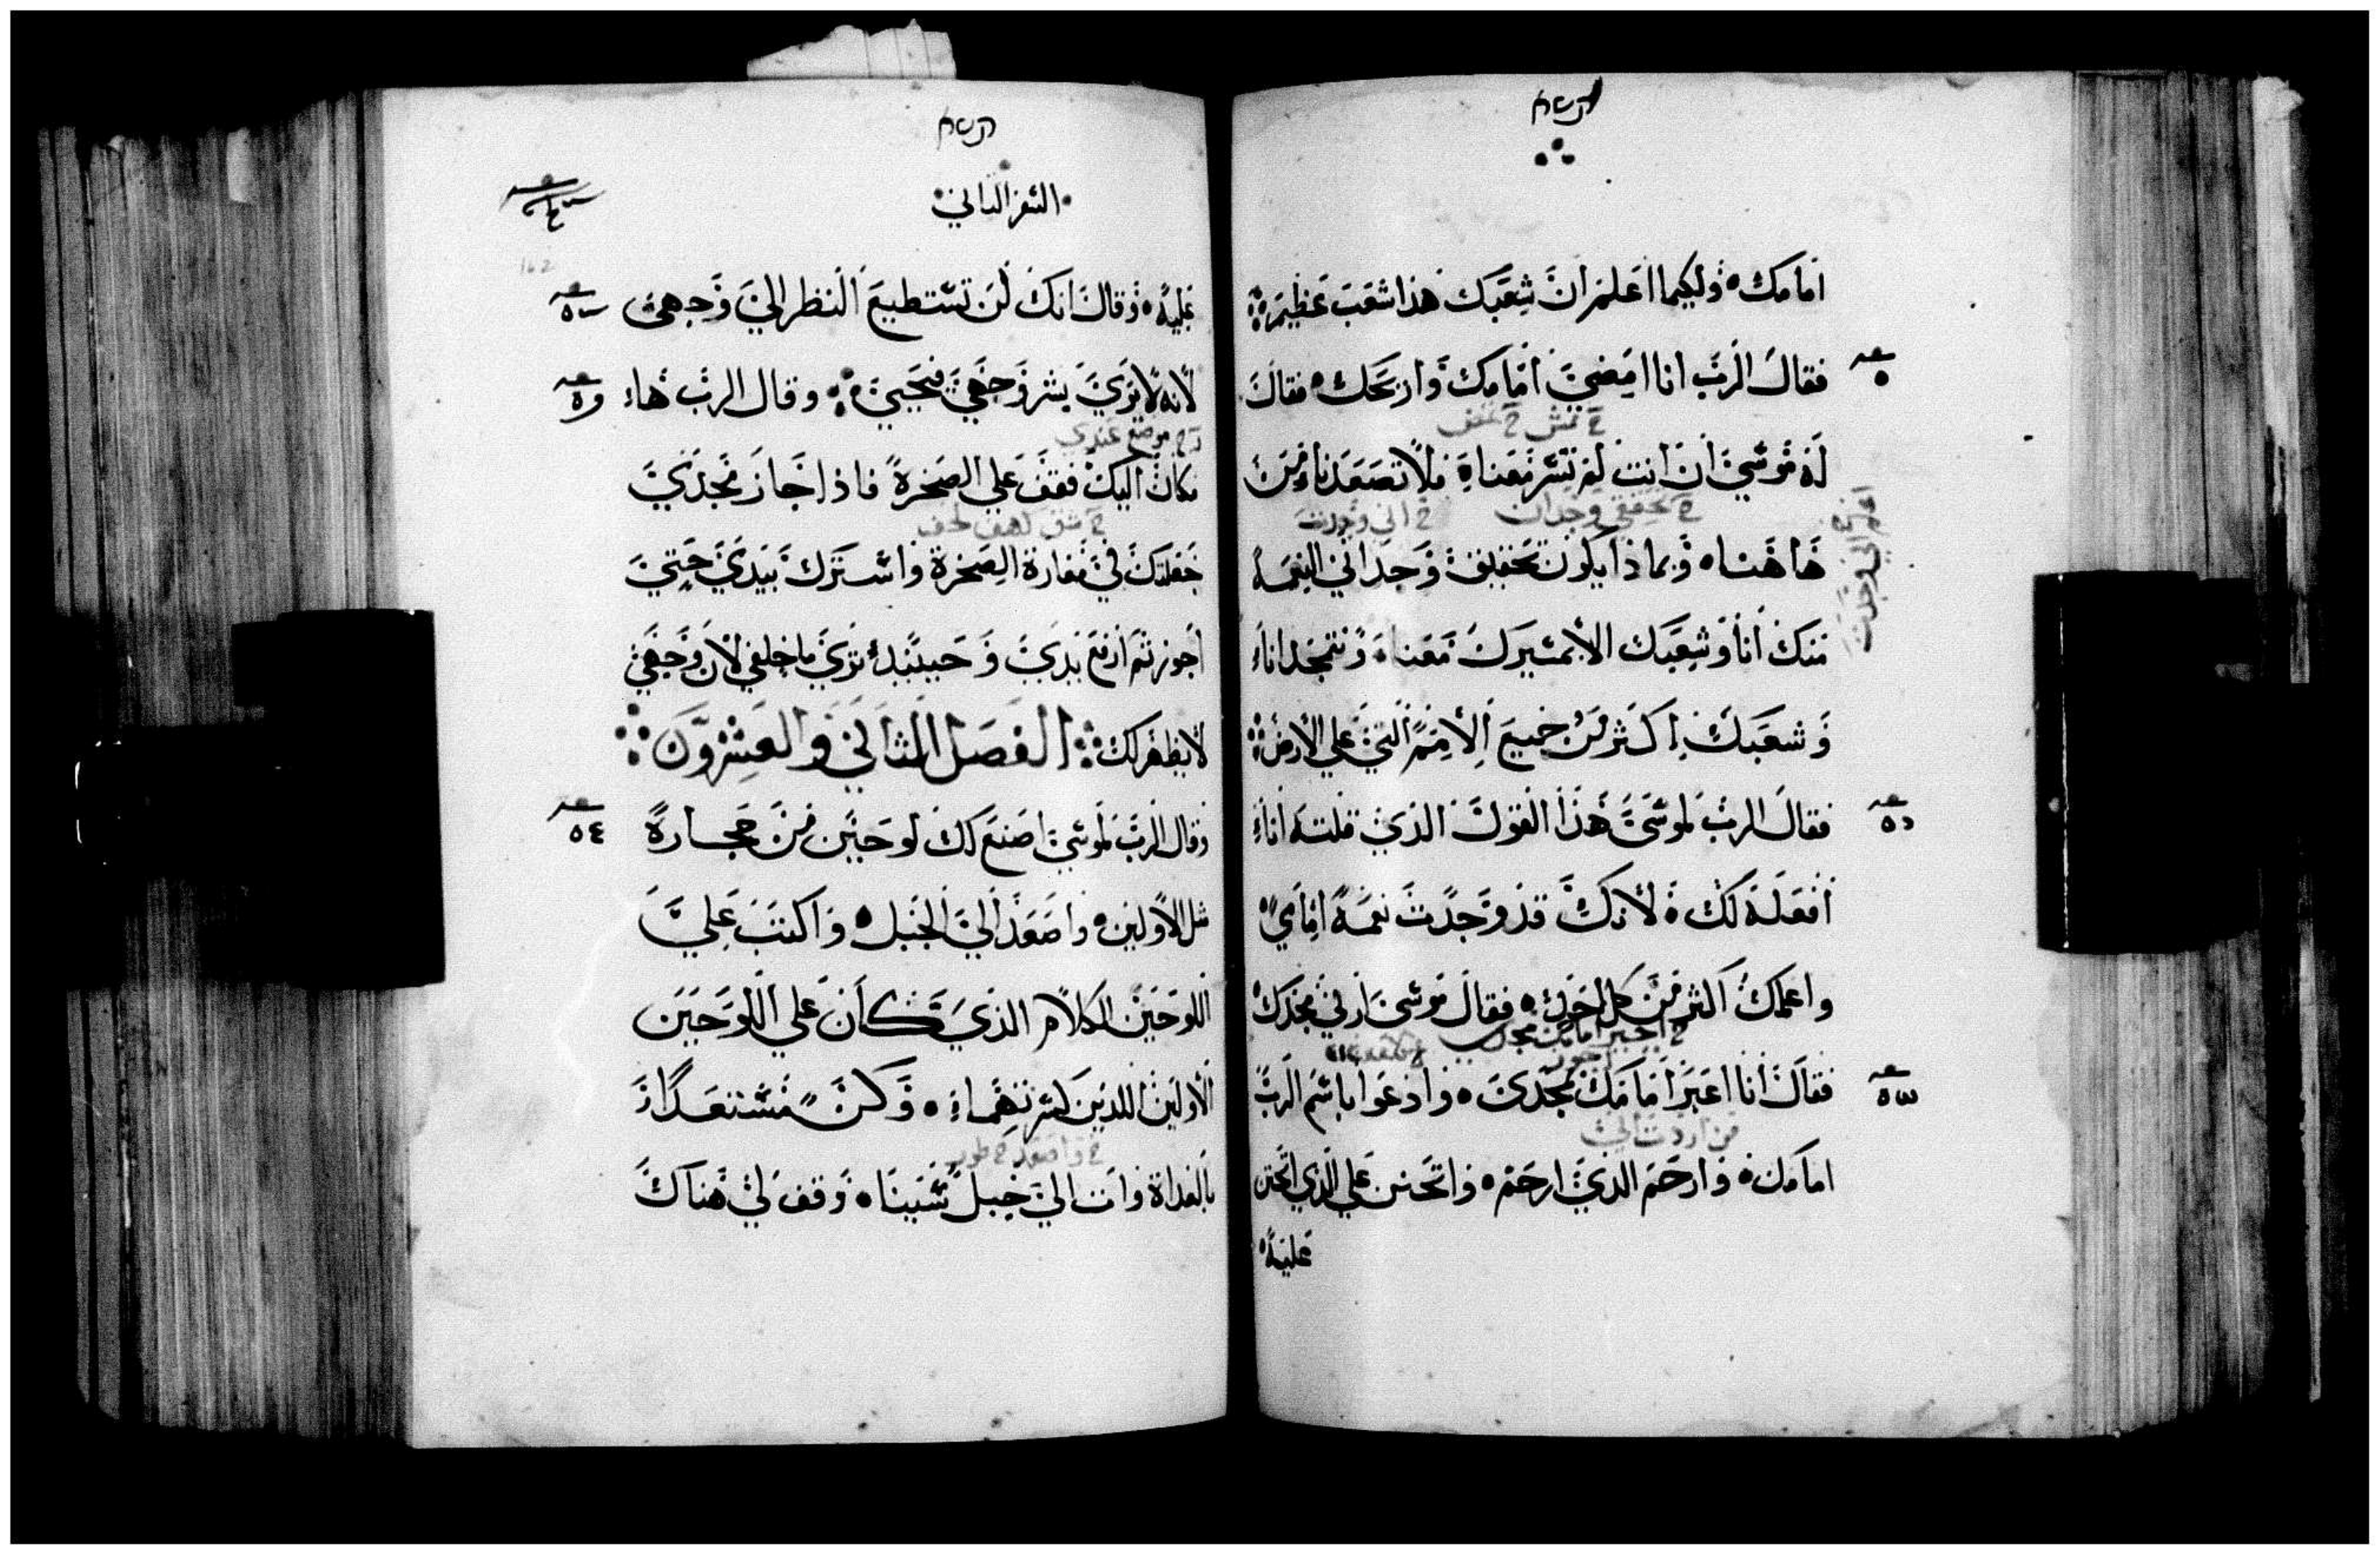 امامك ولكيما اعلم ان شعبك هذا شعب عظيم
فقال الرب انا امضي امامك واريحك فقال
له موسي ان انت لم تسر معنا فلا تصعدنا من
هاهنا وبماذا يكون تحقيق وجداني النعمة
منك انا وشعبك الا بمسيرك معنا ونتمجد انا
وشعبك اكثر من جميع الامم التي علي الارض
فقال الرب لموسي هذا القول الذي قلته انا
افعله لك لانك قد وجدت نعمة امامي
واعلمك اكثر من كل احد فقال موسي ارني مجدك
فقال انا اعبر امامك بمجدي وادعوا باسم الرب
من اردت
امامك وارحم الذي ارحم واتحنن علي الذي اتحنن
عليه
السفر الثاني
162
عليه وقال انك لن تستطيع النظر الي وجهي
لانه لا يري بشر وجهي فيحيي وقال الرب ها
موضع عندي
مكان اليك فقف علي الصخرة فاذا جاز مجدي
جعلتك في مغارة الصخرة واسترك بيدي حتي
اجوز ثم ارفع يدي وحينئذ تري ما خلفي لان وجهي
لا يظهر لك الفصل الثاني والعشرون
وقال الرب لموسي اصنع لك لوحين من حجارة
مثل الاولين واصعد الي الجبل واكتب علي
اللوحين الكلام الذي كان علي اللوحين
الاولين اللدين كسرتهما وكن مستعدا
واصعد
بالغداة وات الي جبل سينا وقف لي هناك